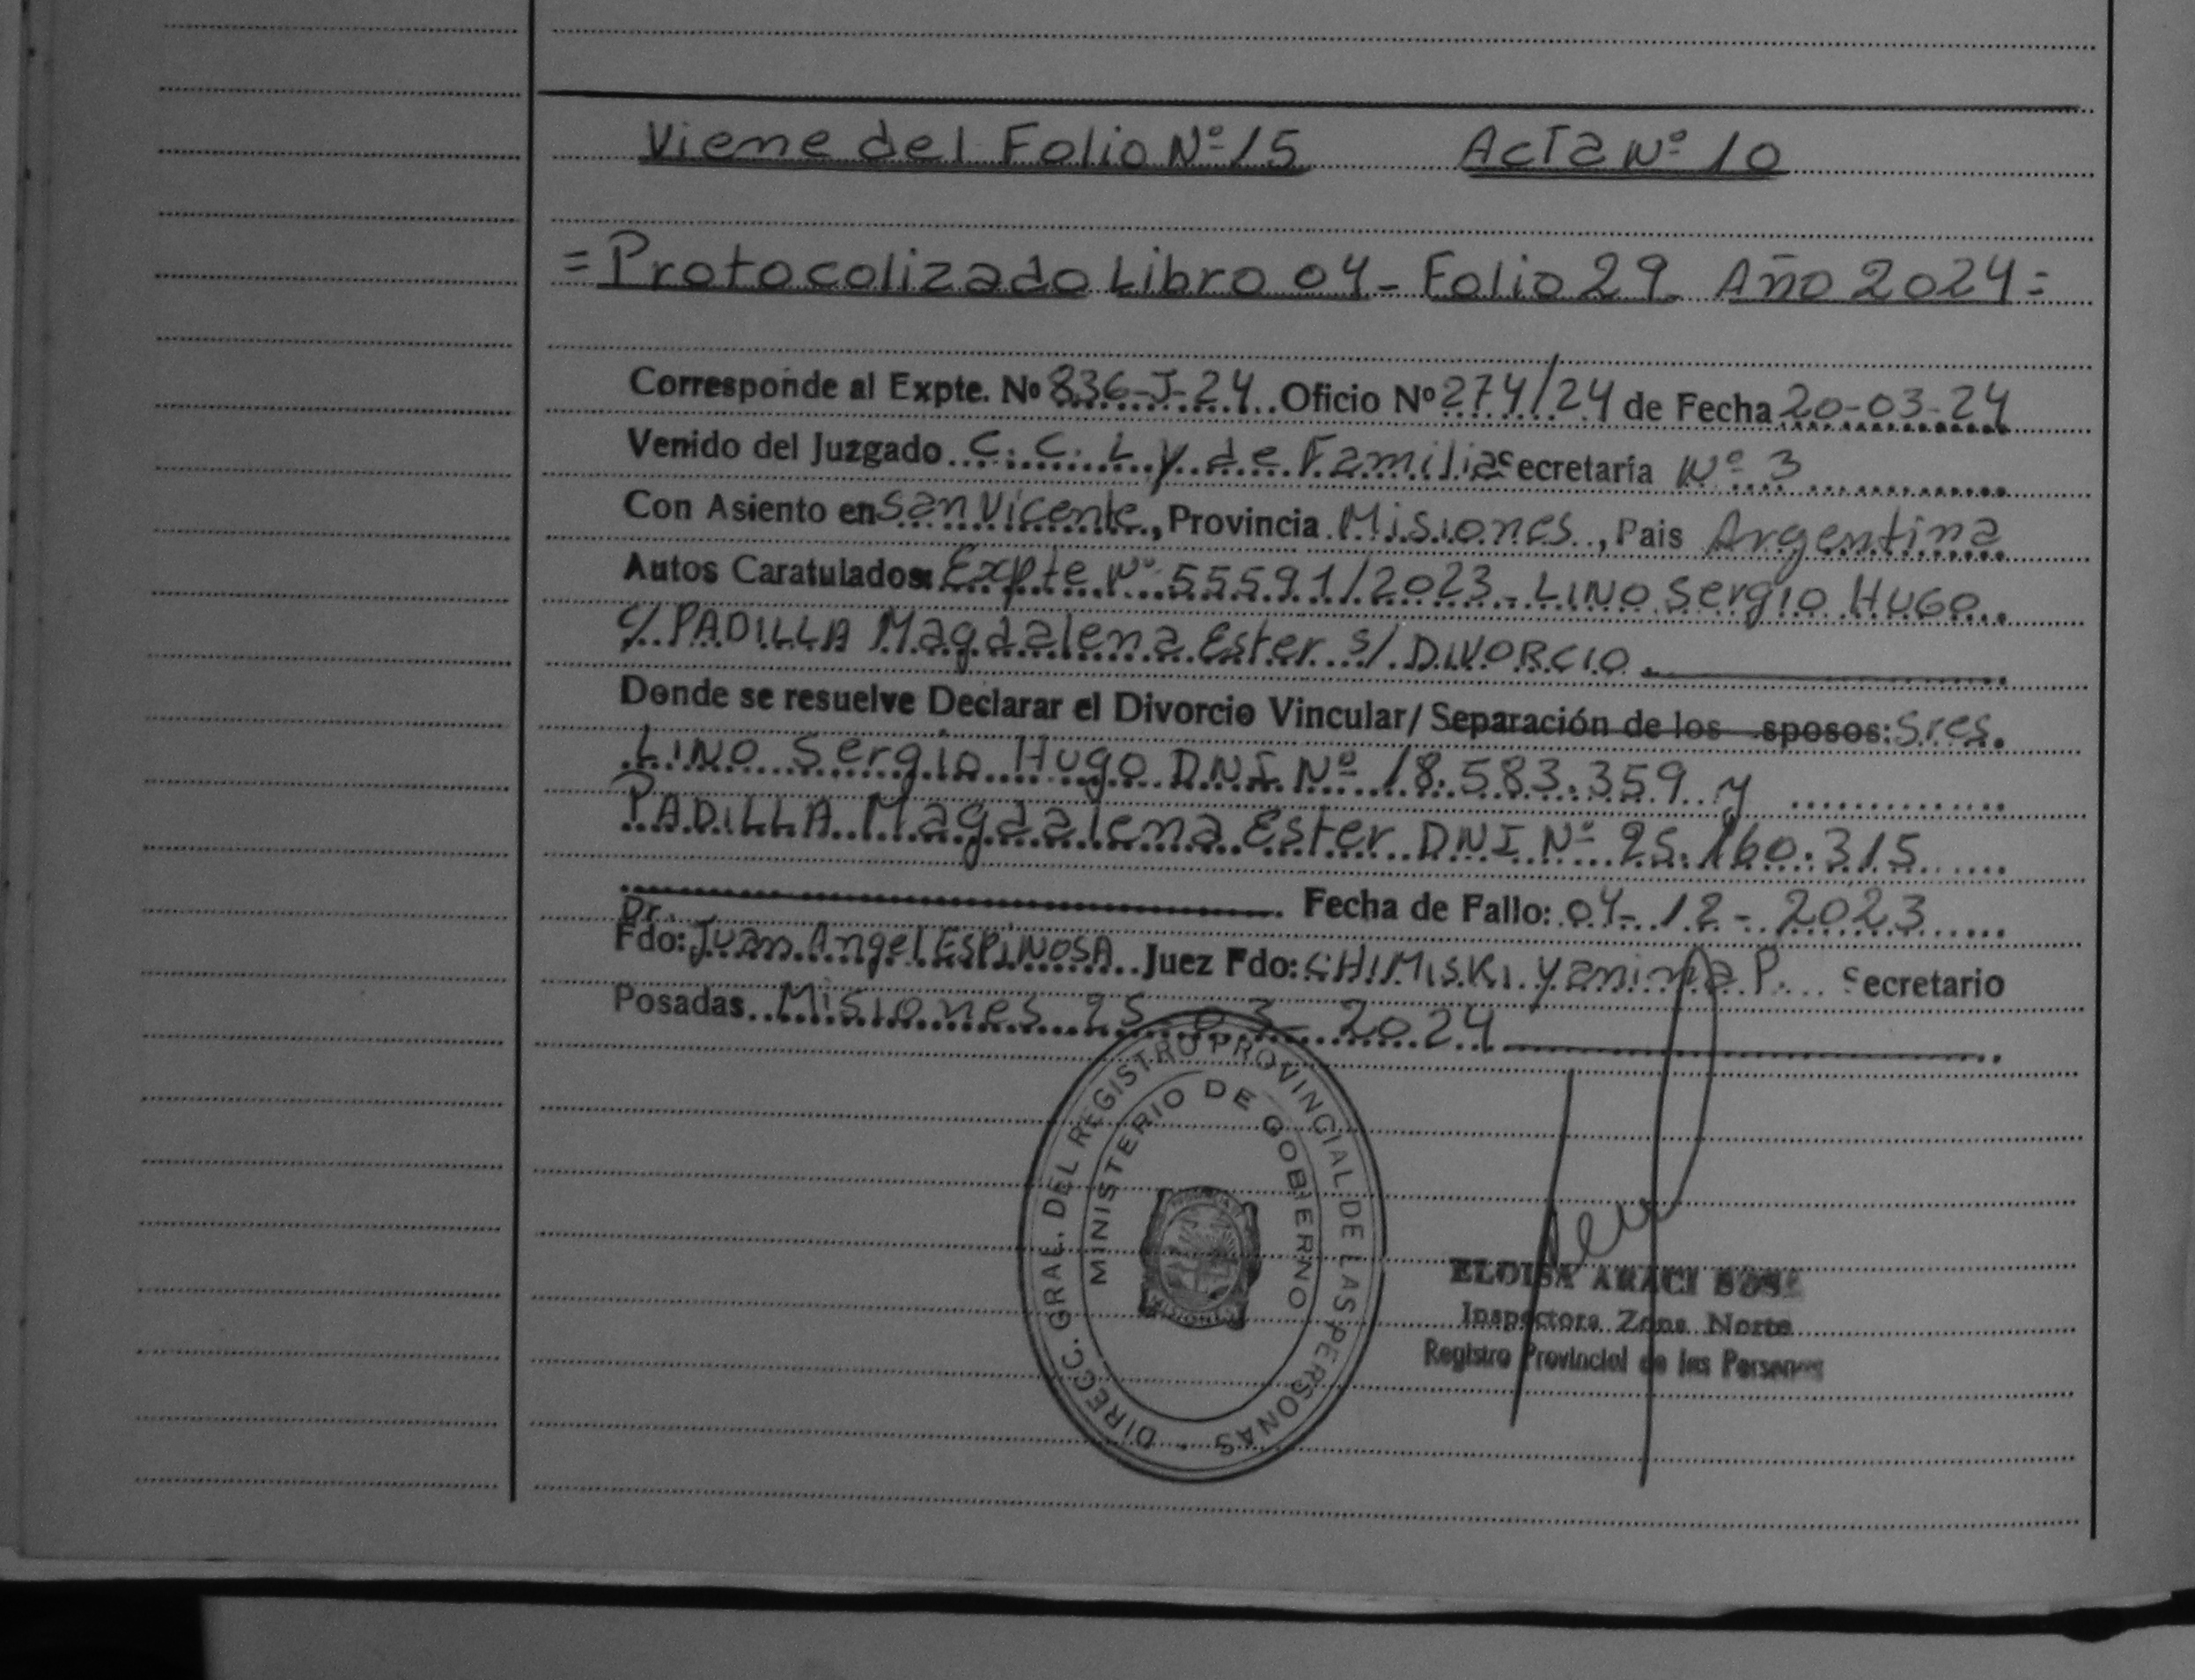 Viene del Folio Nº 15 Acta Nº 10
= Protocolizado Libro 04 - Folio 29. Año 2024 =
Corresponde al Expte. Nº 836-J-24. Oficio Nº 274/24 de Fecha 20-03-24
Venido del Juzgado C. C. L y de Familia Secretaría Nº 3
Con Asiento en San Vicente, Provincia Misiones, Pais Argentina
Autos Caratulados: Expte Nº 55591/2023 - LINO Sergio HUGO
c/ PADILLA Magdalena Ester s/ DIVORCIO.
Donde se resuelve Declarar el Divorcio Vincular/ Separación de los sposos: Sres.
LINO Sergio Hugo DNI Nº 18.583.359 y
PADILLA Magdalena Ester DNI Nº 25.160.315
Fecha de Fallo: 04-12-2023
Dr.
Fdo: Juan Angel ESPINOSA Juez Fdo: CHIMISKI Yanina P. Secretario
Posadas Misiones 25-03-2024
DIRECC. GRAL. DEL REGISTRO PROVINCIAL DE LAS PERSONAS
MINISTERIO DE GOBIERNO
MISIONES
ELOISA ARACI
Inspectora Zona Norte
Registro Provincial de las Personas